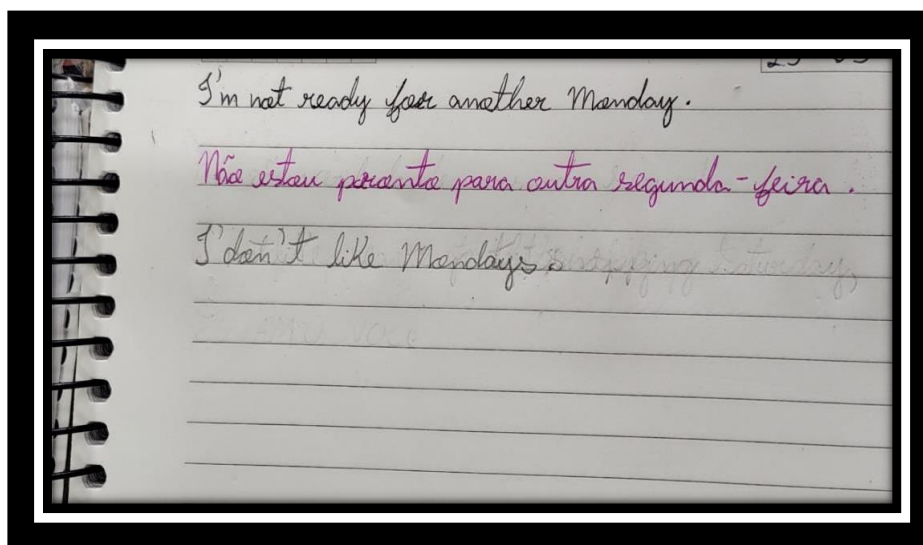 I'm not ready for another Monday.
Não estou pronto para outra segunda-feira.
I don't like Mondays.